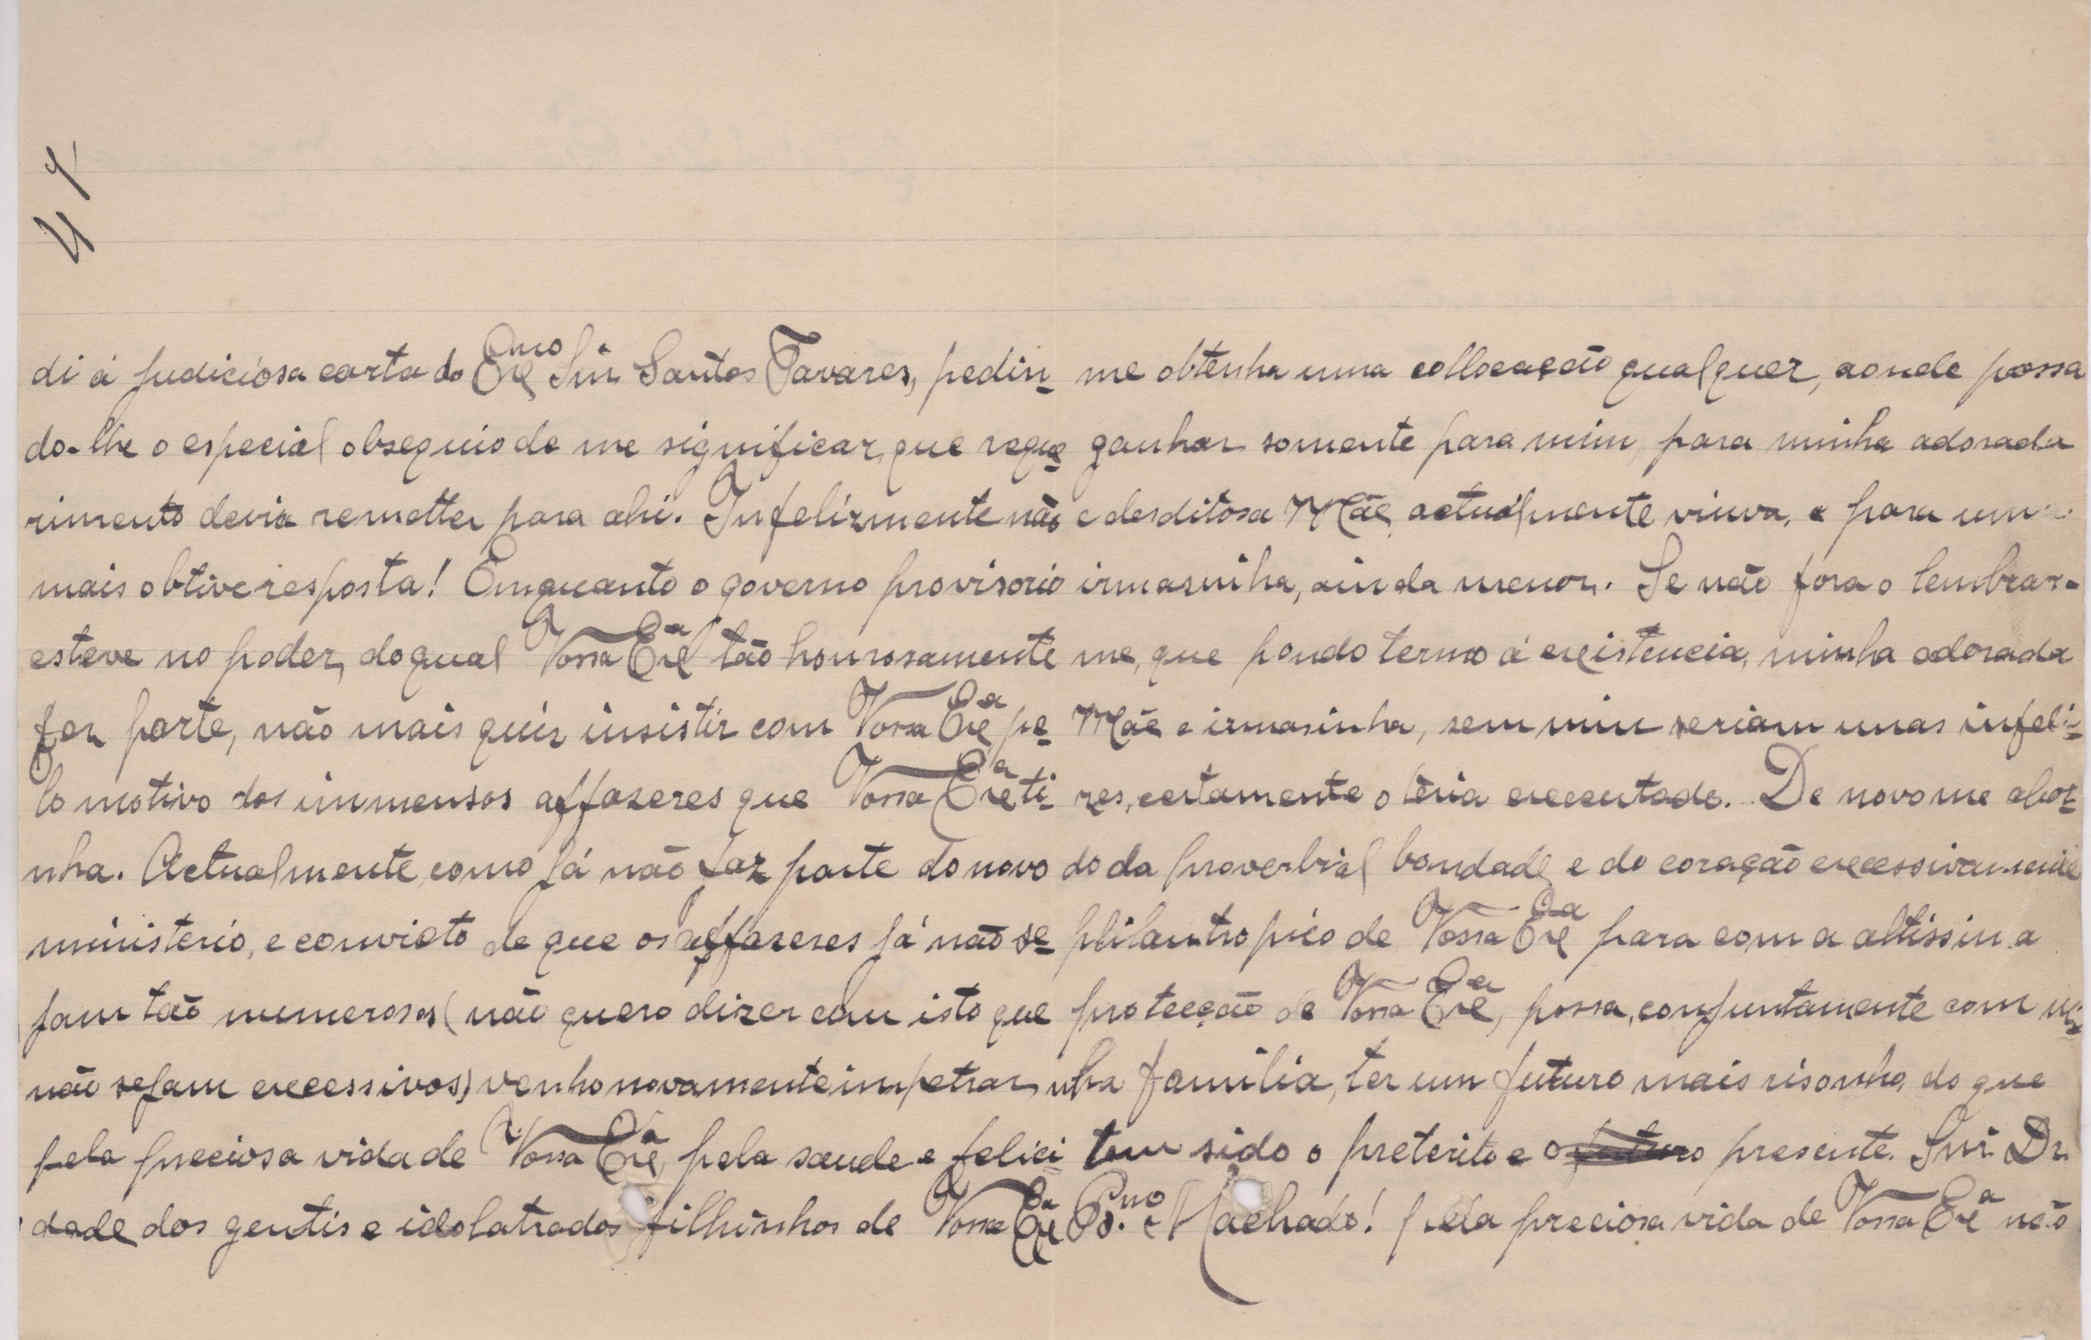 47
di á judiciósa carta do Exmo Snr. Santos Tavares, pedin-
do-lhe o especial obsequio de me significar, que reque-
rimento devia remetter para ahi. Infelizmente não
mais obtive resposta! Emquanto o governo provisorio
esteve no poder, do qual Vossa Exª tão honrosamente
fez parte, não mais quiz insistir com Vossa Exª pe-
lo motivo dos immensos affazeres que Vossa Exª ti-
nha. Actualmente, como já não faz parte do novo
ministerio, e convicto de que os affazeres já não se-
jam tão numerosos (não quero dizer com isto que
não sejam excessivos) venho novamente impetrar,
pela preciosa vida de Vossa Exª, pela saude e felici
dade dos gentis e idolatrados filhinhos de Vossa Exª
me obtenha uma collocação qualquer, aonde possa
ganhar somente para mim, para minha adorada
e desditosa Mãe, actualmente viuva, e para um
irmasinha, ainda menor. Se não fora o lembrar-
me, que pondo termo á existencia, minha adorada
Mãe e irmasinha, sem mim seriam umas infeli-
zes, certamente o teria executado. De novo me abor-
do da proverbial bondade e do coração excessivamente
philantropico de Vossa Exª para com a altissima
protecção de Vossa Exª, possa, conjuntamente com mi-
nha familia, ter um futuro mais risonho, do que
tem sido o preterito e o futuro presente. Snr. Dr.
Bno. Machado! pela preciosa vida de Vossa Exª não